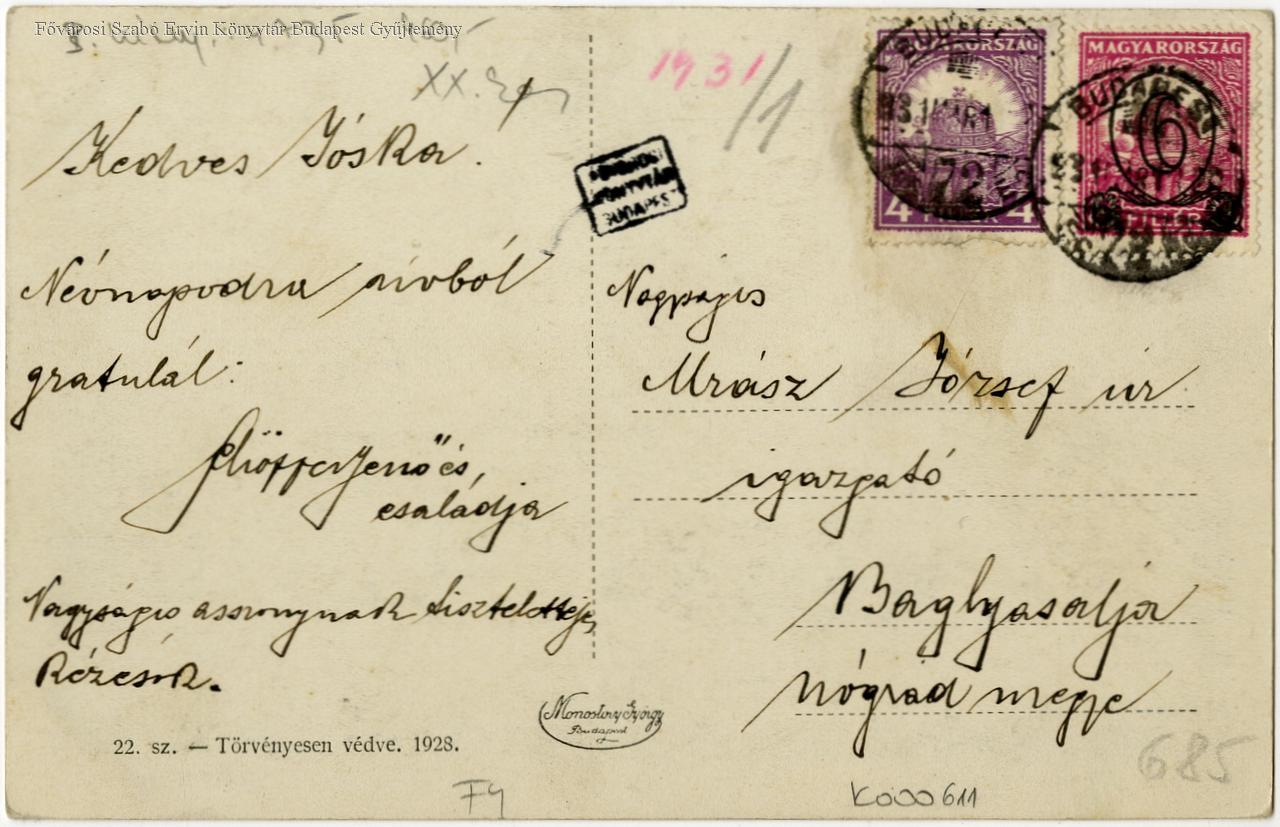 Fővárosi Szabó Ervin Könyvtár Budapest Gyűjtemény
1931/1
Kedves Jóska.
Névnapodra szívból
gratulál:
Jenő és
családja
Nagyságos asszonynak
Kézcsók.
22. sz. — Törvényesen védve. 1928.
MAGYARORSZÁG
4 FILLÉR 4
72
MAGYARORSZÁG
6
FILLÉR
BUDAPEST
BUDAPEST
Nagyságos
Mrász József úr
igazgató
Baglyasalja
Nógrád megye
Monostory György
Budapest
685
F4
K000611